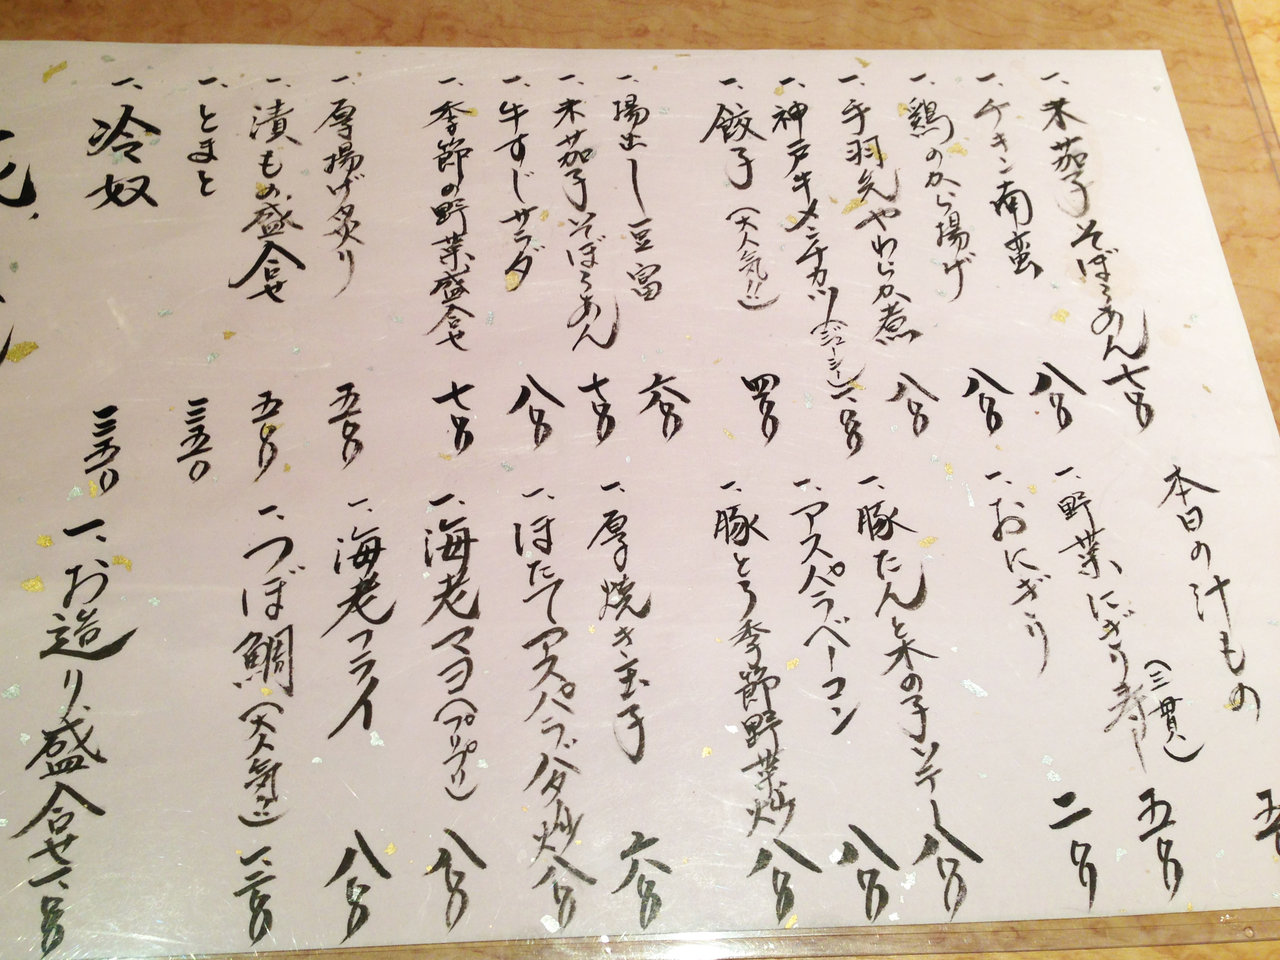 一、米茄子そぼろあん 七百
一、チキン南蛮 八百
一、鶏のから揚げ 八百
一、手羽先やわらか煮 八百
一、神戸牛メンチカツ(ジューシー) 一、百
一、餃子(大人気!!) 四百
一、揚出し豆富 六百
一、米茄子そぼろあん 七百
一、牛すじサラダ 八百
一、季節の野菜盛合せ 七百
一、厚揚げ炙り 五百
一、漬もの盛合せ 五百
一、とまと 三五〇
一、冷奴 三五〇
本日の汁もの 五
一、野菜にぎり寿し(三貫) 五百
一、おにぎり 二百
一、豚たんと木の子ソテー 八百
一、アスパラベーコン 八百
一、豚とろ季節野菜炒 八百
一、厚焼き玉子 六百
一、ほたてアスパラバタ炒 八百
一、海老マヨ(プリプリ) 八百
一、海老フライ 八百
一、つぼ鯛(大人気!!) 一、二百
一、お造り盛合せ 一、百